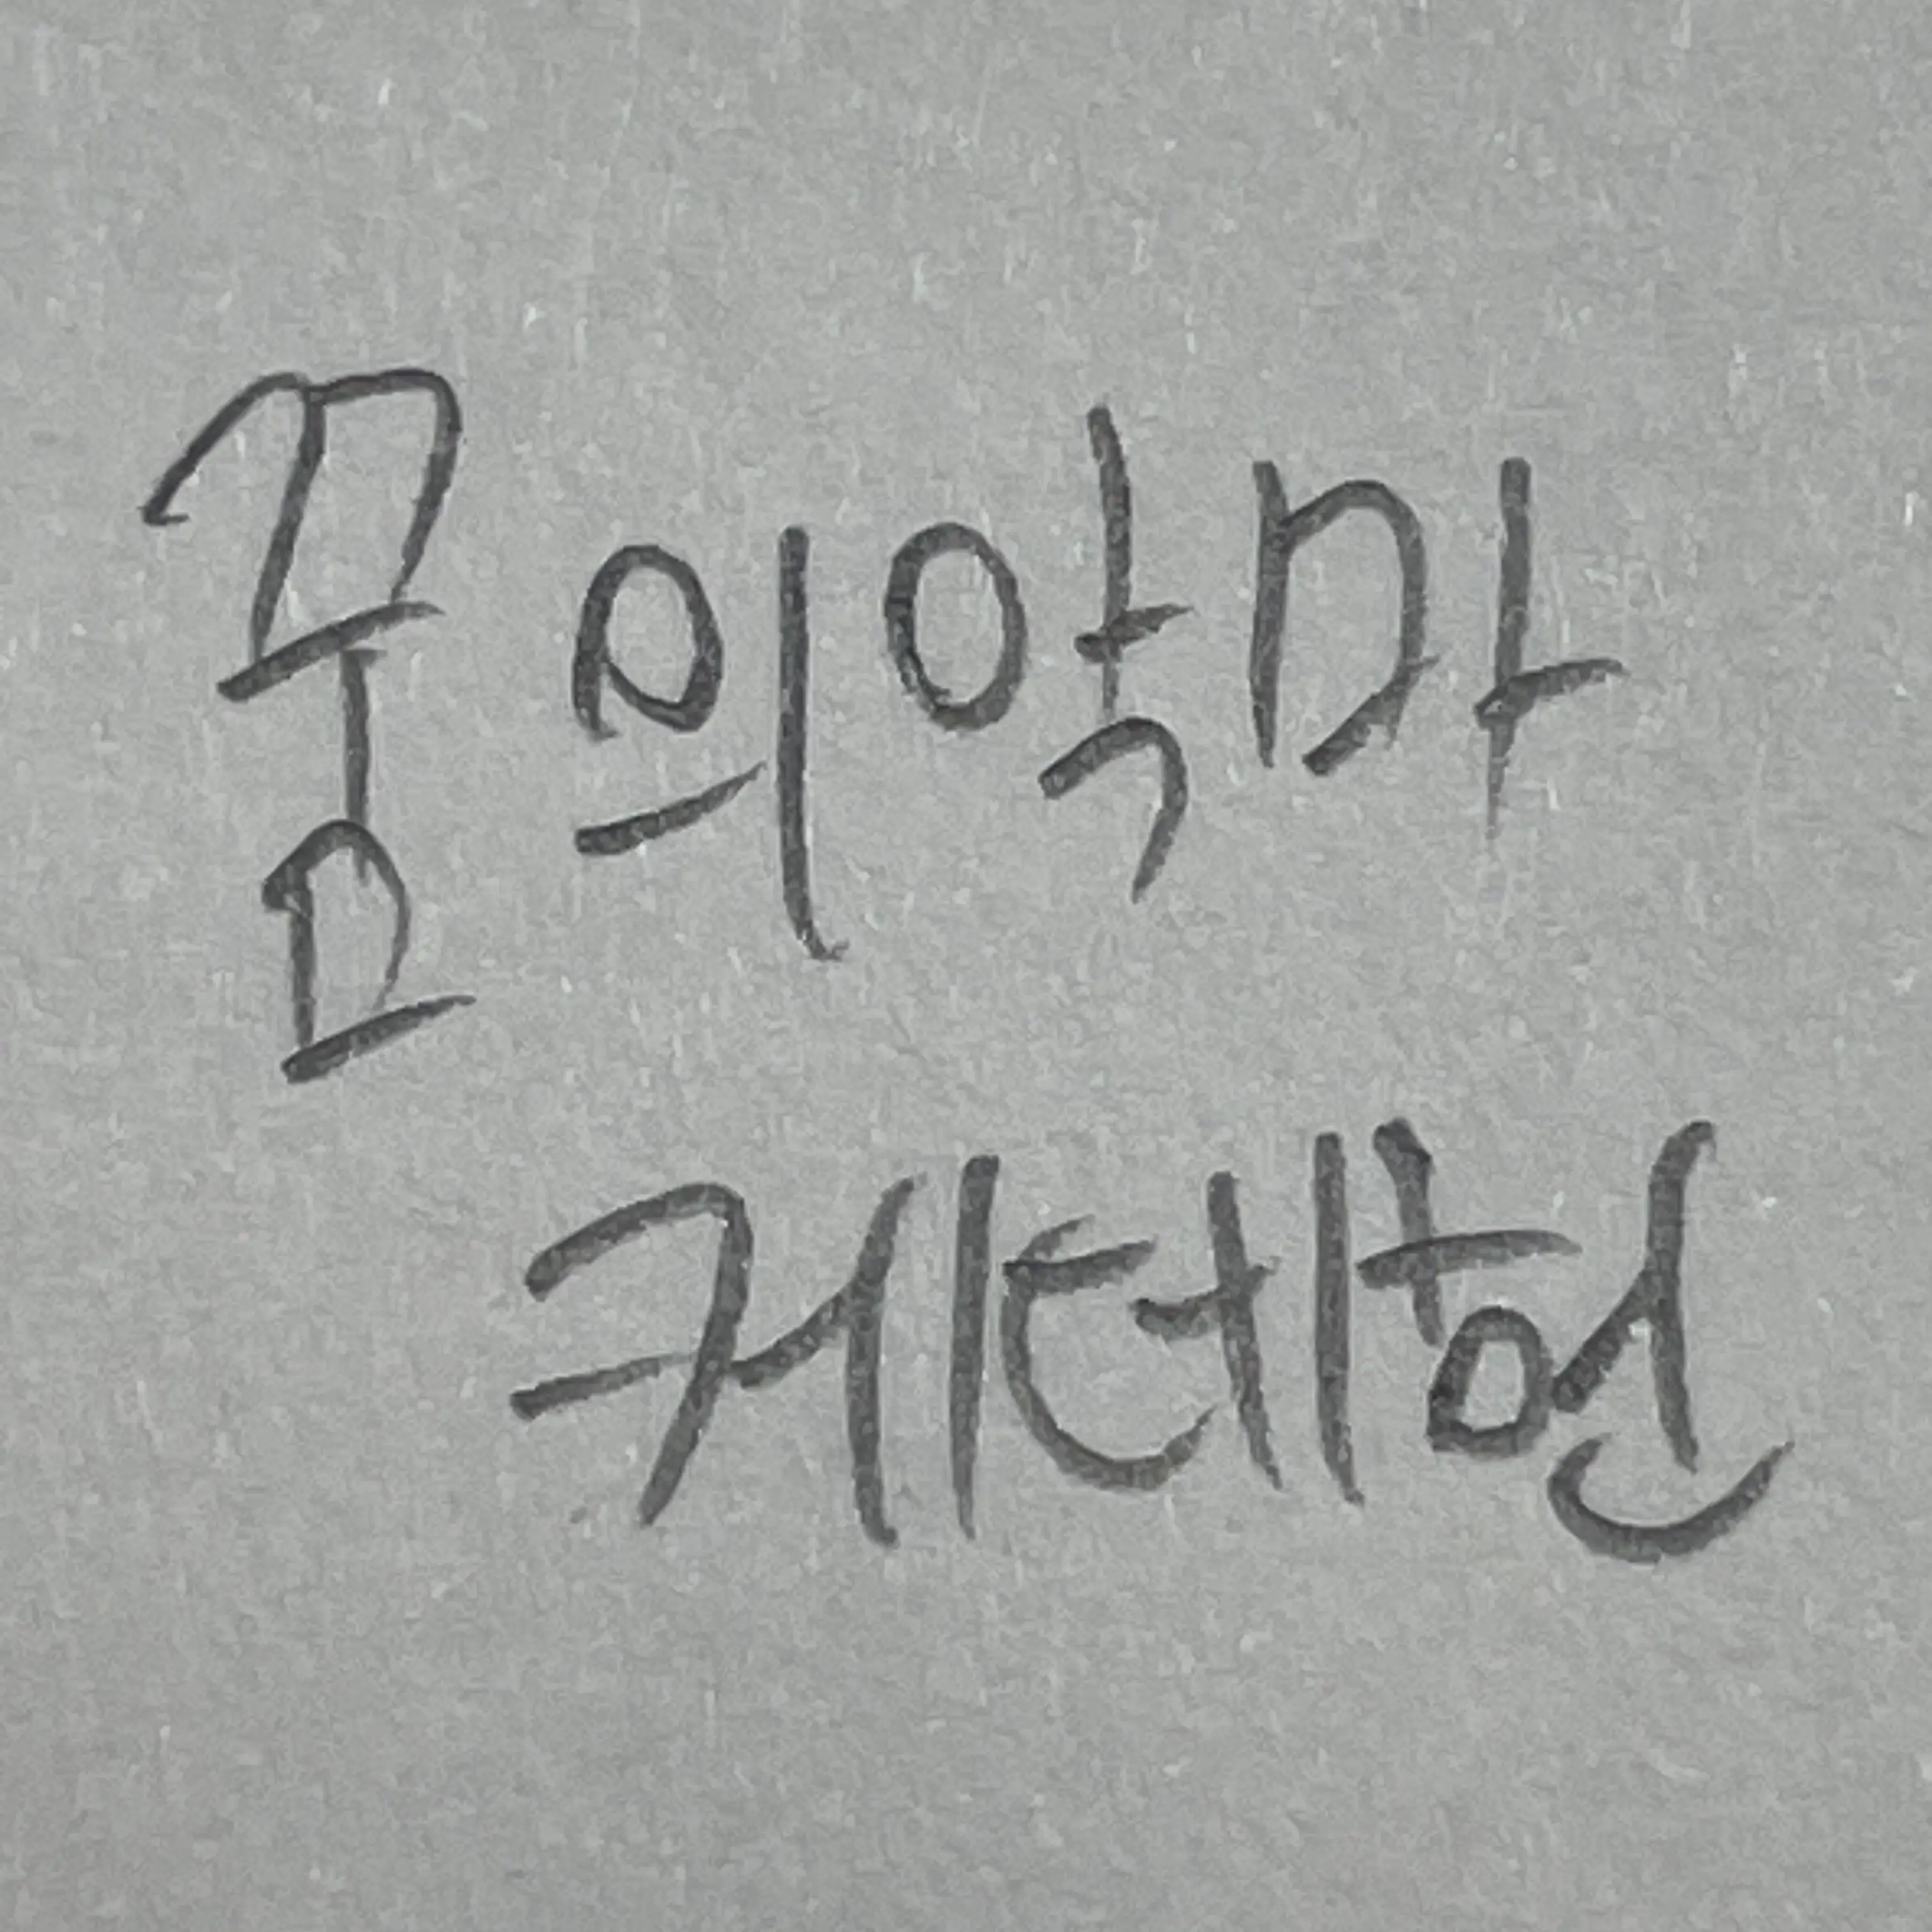 꿈의악마
케테헌